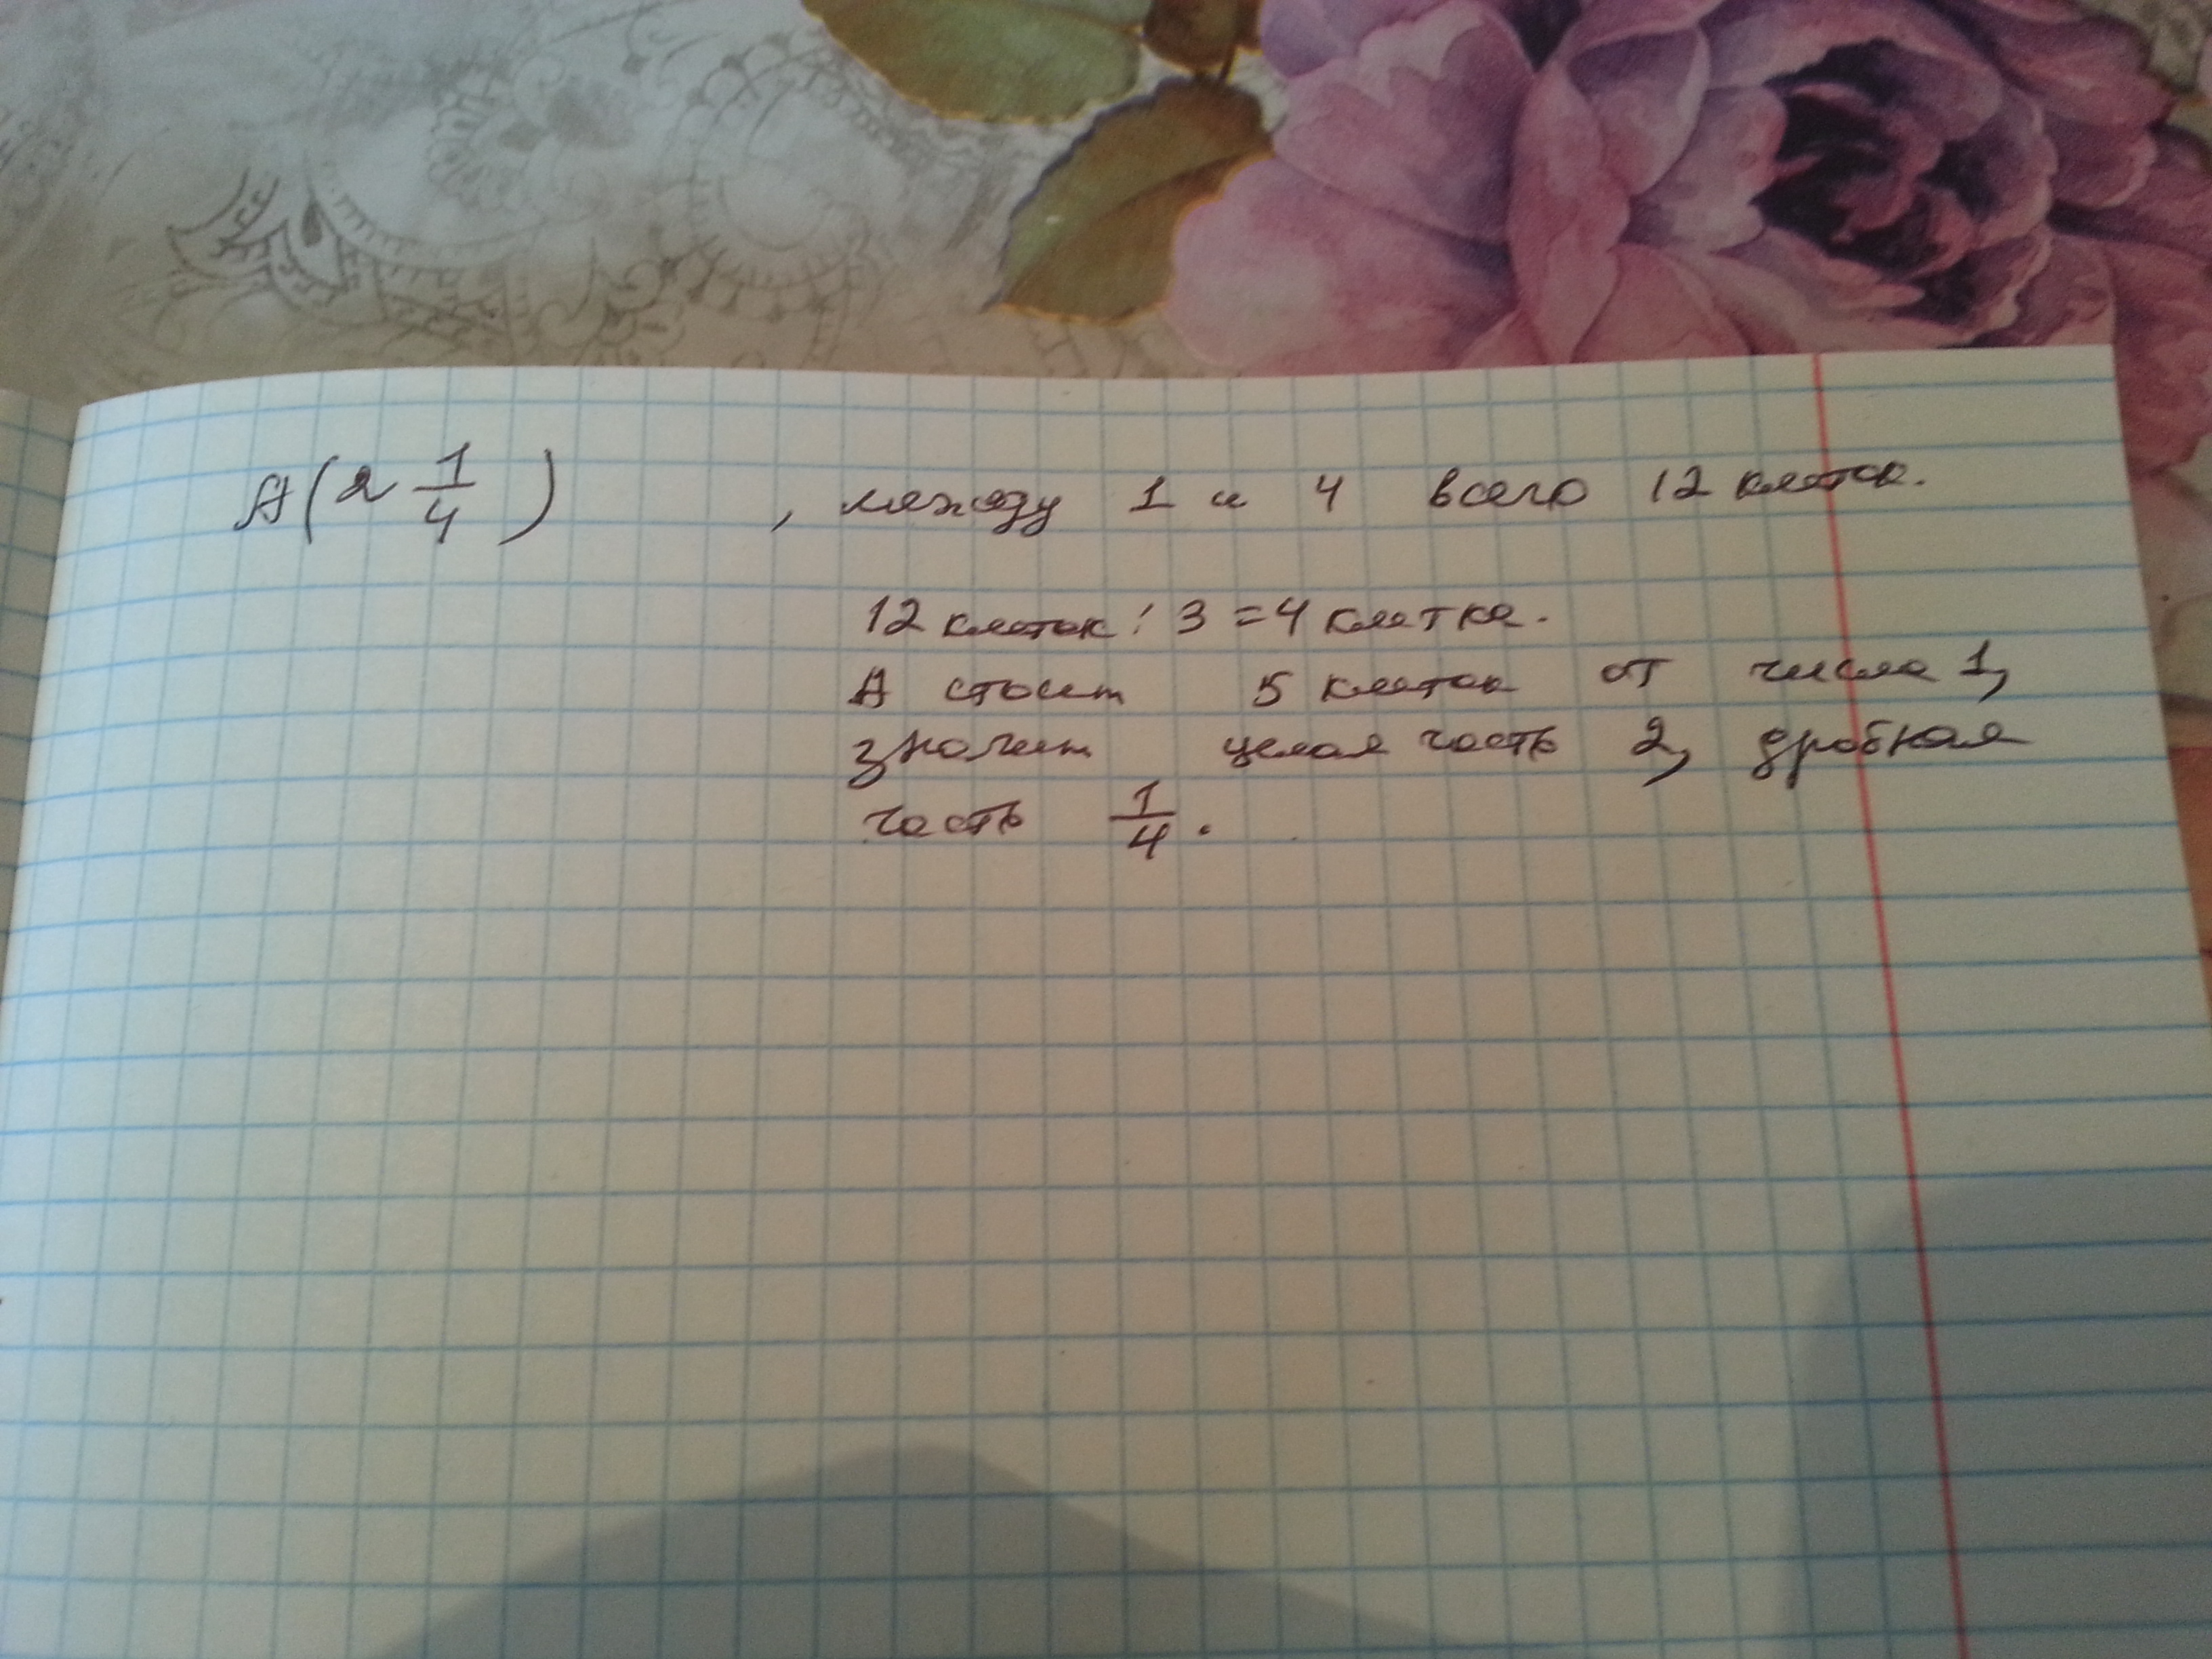 A(2 1/4) , между 1 и 4 всего 12 клеток.
12 клеток : 3 = 4 клетка.
A стоит 5 клеток от числа 1,
значит целая часть 2, дробная
часть 1/4.